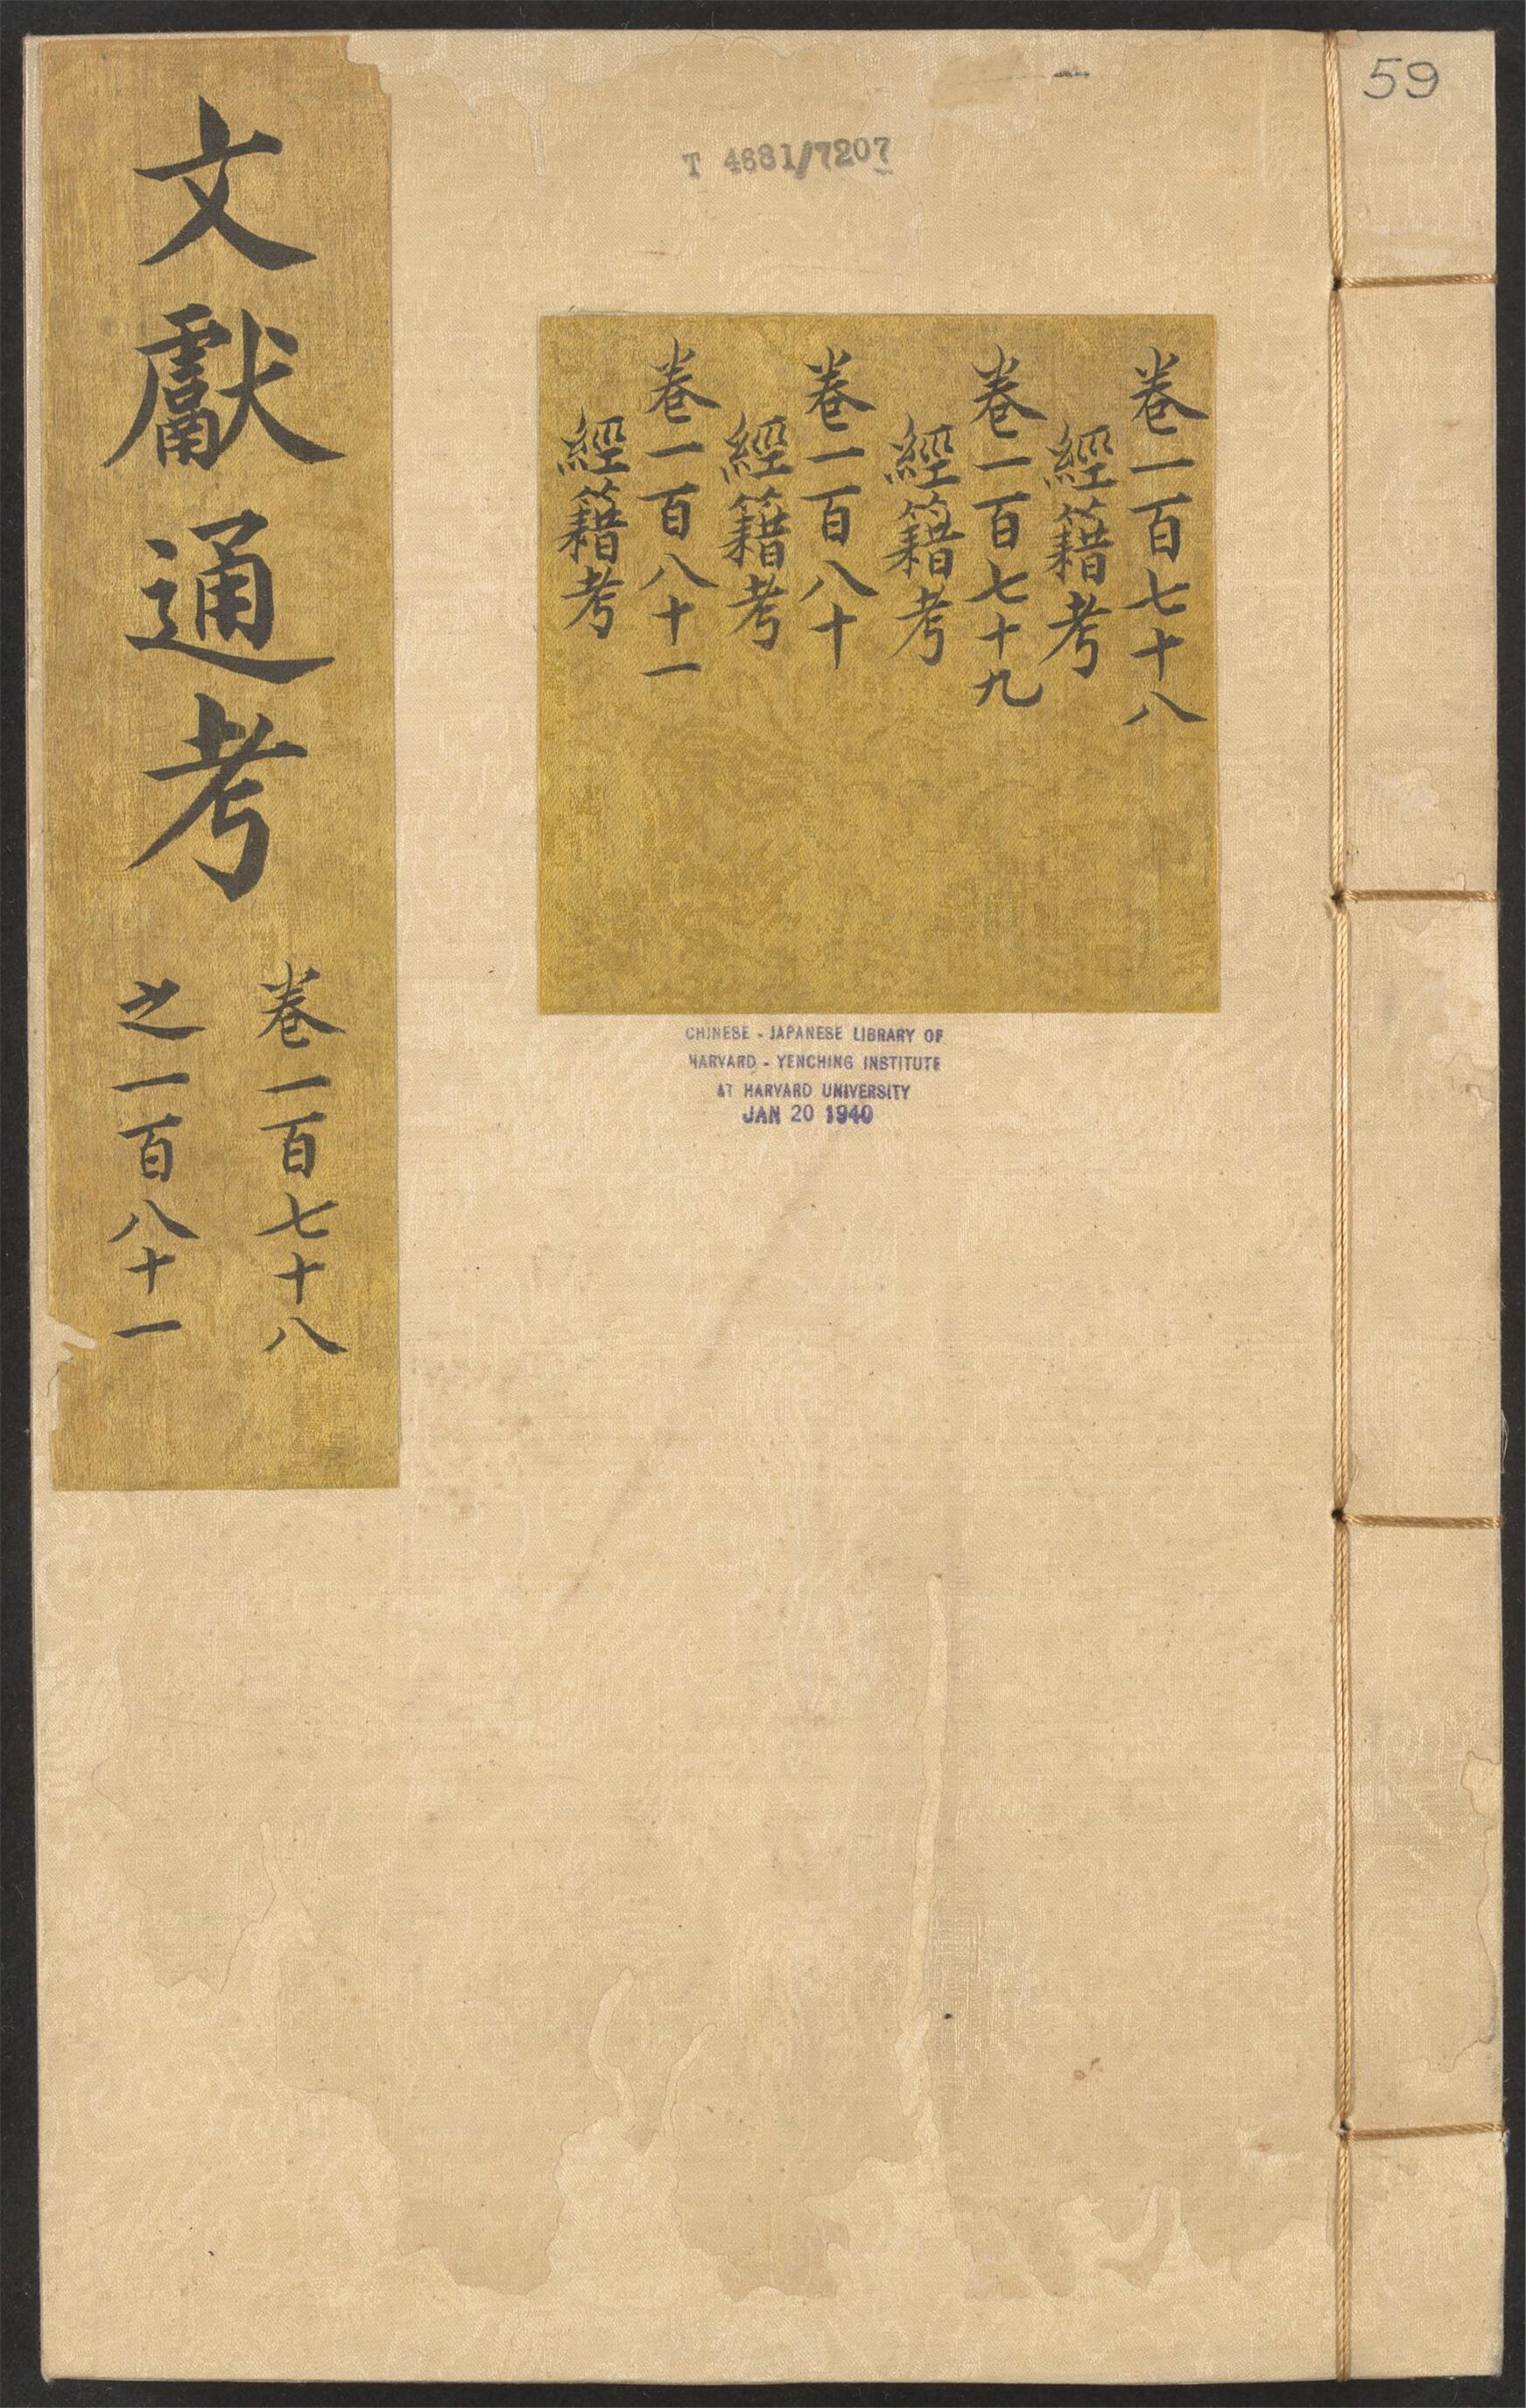 59
T 4681/7207
卷一百七十八
經籍考
卷一百七十九
經籍考
卷一百八十
經籍考
卷一百八十一
經籍考
文獻通考
卷一百七十八
之一百八十一
CHINESE - JAPANESE LIBRARY OF
HARVARD - YENCHING INSTITUTE
AT HARVARD UNIVERSITY
JAN 20 1940